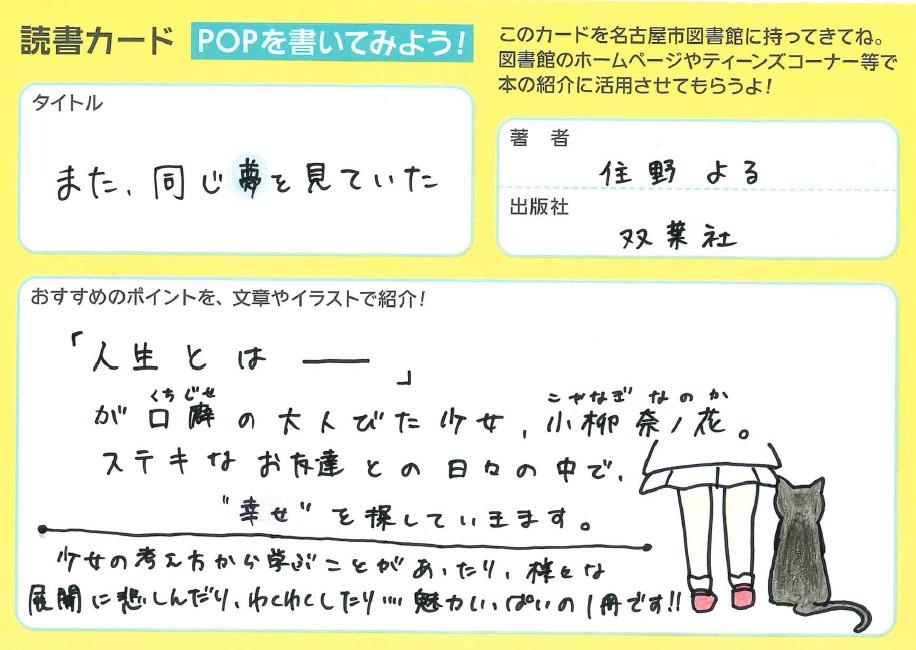 読書カード POPを書いてみよう!
このカードを名古屋市図書館に持ってきてね。
図書館のホームページやティーンズコーナー等で
本の紹介に活用させてもらうよ!
タイトル
また、同じ夢を見ていた
著 者
住野 よる
出版社
双葉社
おすすめのポイントを、文章やイラストで紹介!
「人生とは ――
」
くちじせ こやなぎ なのか
が口癖の大人びた少女、小柳 奈ノ花。
ステキなお友達との日々の中で、
"幸せ"を探していきます。
少女の考え方から学ぶことがあったり、様々な
展開に悲しんだり、わくわくしたり…魅力いっぱいの1冊です!!